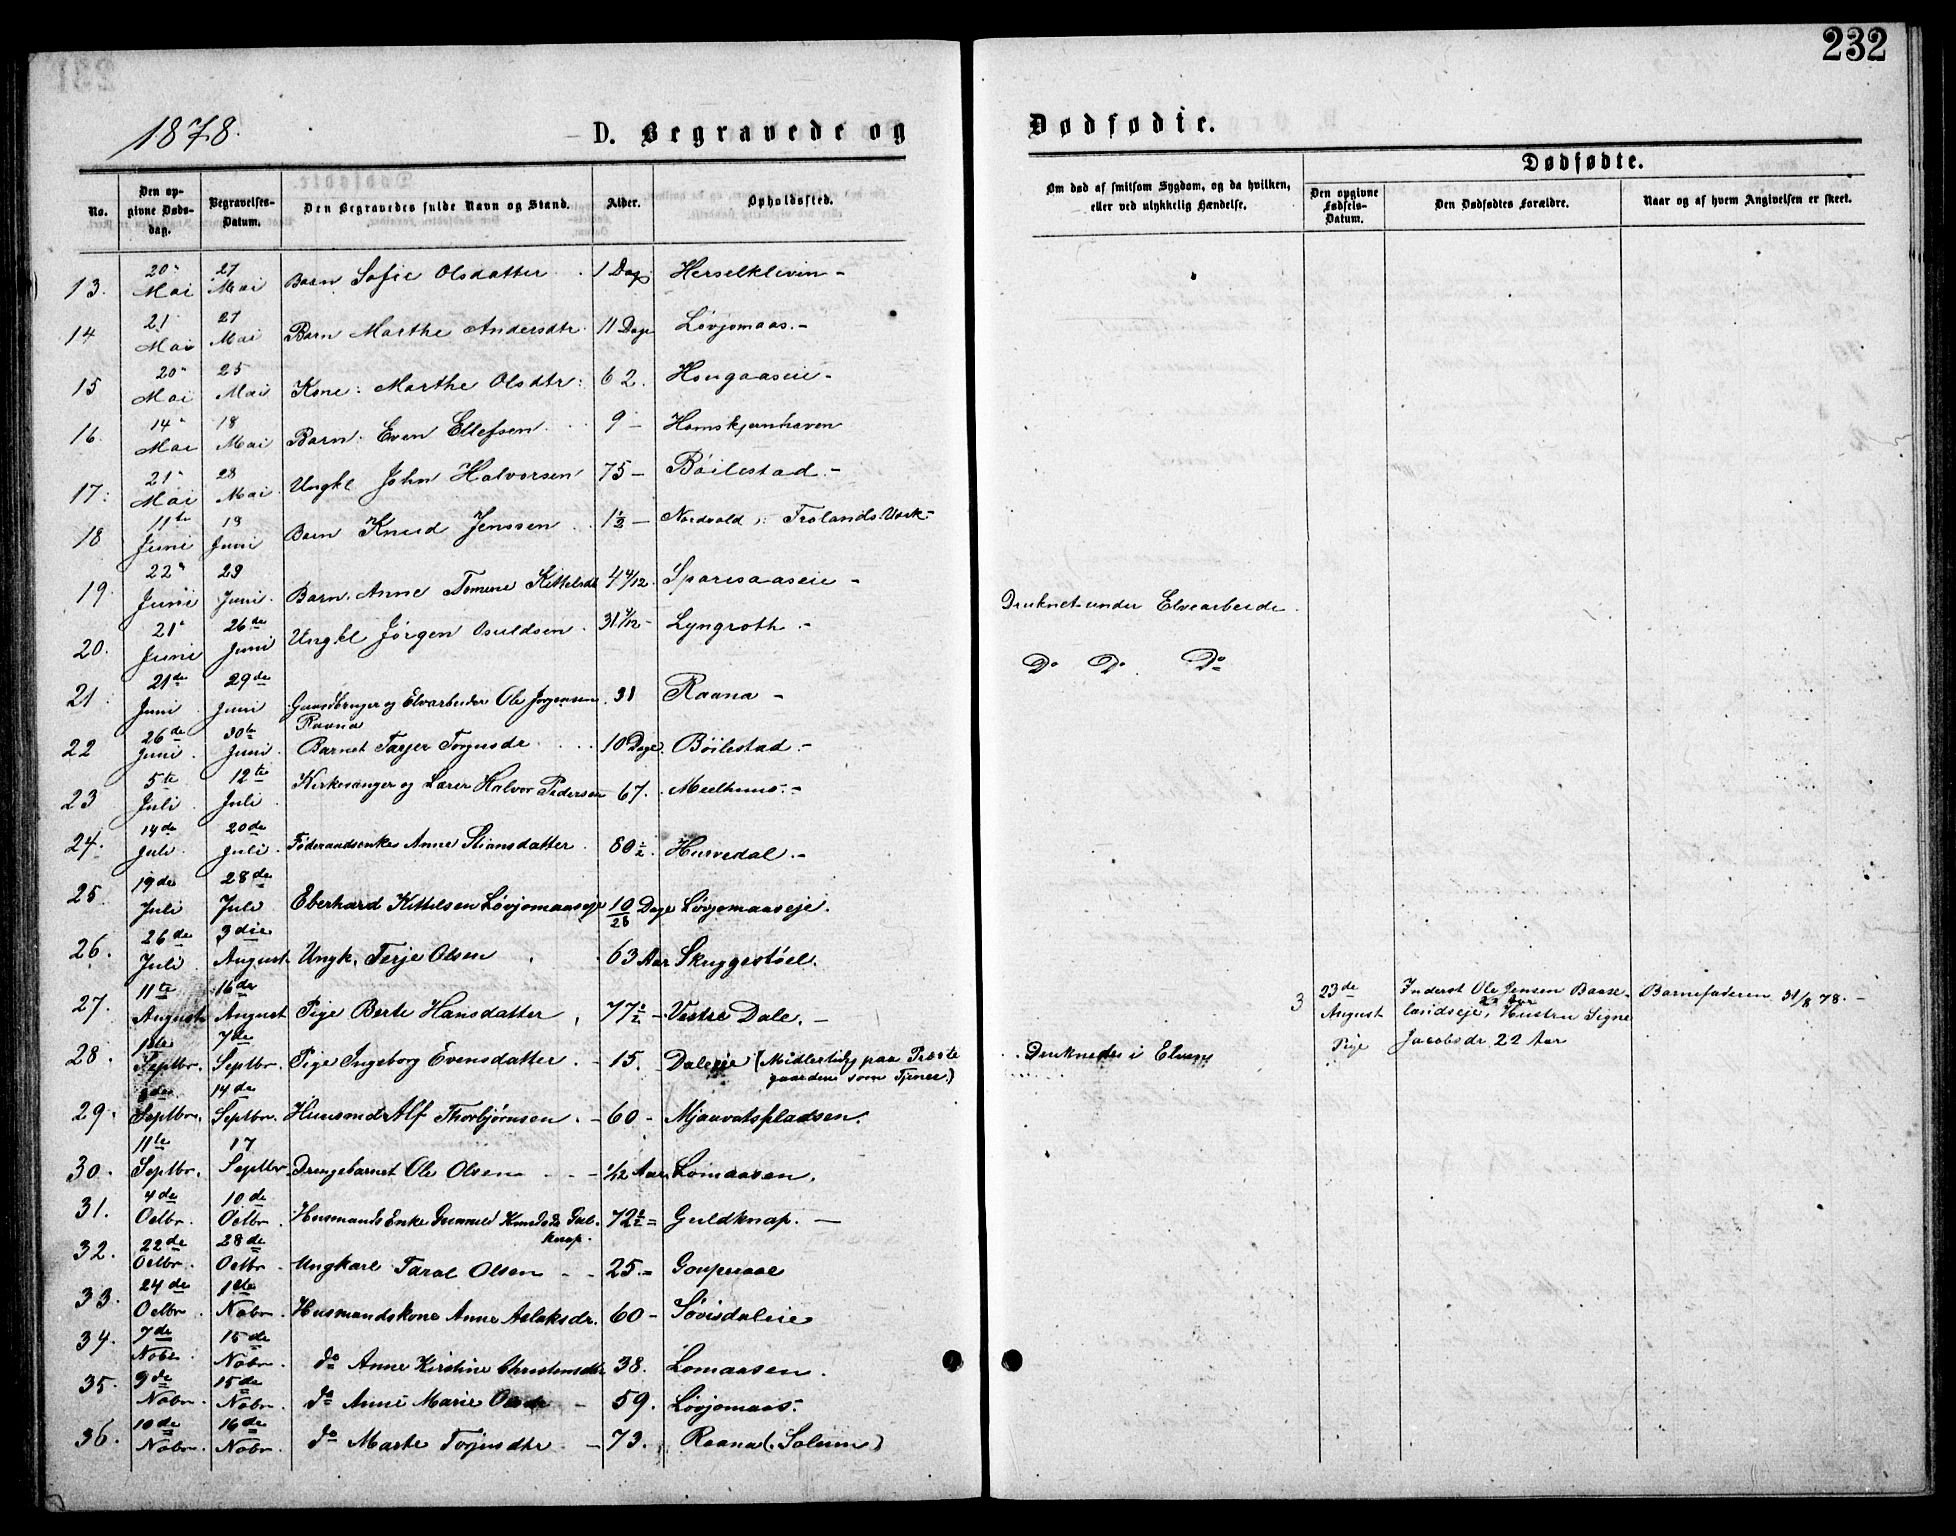 232
1878.
D. Begravede og
Dødfødte.
Dødfødte.
No.
Den opgivne Dødsdag.
Begravelses-Datum.
Den Begravedes fulde Navn og Stand.
Alder.
Opholdssted.
Om død af smitsom Sygdom, og da hvilken, eller ved ulykkelig Hændelse.
Den opgivne Fødsels-Datum.
Den Dødfødtes Forældre.
Naar og af hvem Angivelsen er skeet.
13. 20 Mai 27 Mai Barn Sofie Olsdatter 1 Dag Herselkleven -
14 21 Mai 27 Mai Barn Marthe Andersdtr. 11 Dage Løvjomaas. -
15 20 Mai 25 Mai Kone: Marthe Olsdtr: 62. Hougaaseie -
16. 14 Mai 18 Mai Barn: Even Ellefsen 9 - Homskjernhaven
17. 21 Mai 28 Mai Ungkl John Halvorsen 75 - Bøilestad. -
18 11te Juni 19 Juni Barn Knud Jenssen 1½ - Nordvold Frolands Værk -
19. 22 Juni 29 Juni Barn. Anne Tomine Kittelsdtr 4 4/12. Sparsaaseie -
20. 21 Juni 26de Juni Ungkl Jørgen Osuldsen 31 Lyngroth. - Druknet under Elvearbeide
21 21de Juni 29de Juni Gaardbruger og Elvarbeider Ole Jørgensen Raana 31 Raana - Do Do Do
22 26de Juni 30te Juni Barnet Tarjer Torjusdr 10 Dage. Bøilestad. -
23 5te Juli 12te Juli Kirkesanger og Lærer Halvor Pedersen 67. Mælhuus. -
24. 14de Juli 20de Juli Føderaadsenke Anne Stiansdatter 80½. Hurvedal. -
25. 19de Juli 28de Juli Eberhard Kittelsen Løvjomaaseje 10/28 Dage Løvjomaaseje.
26. 26de Juli 3die August Ungk. Terje Olsen 63 Aar Skuggestøel.
27. 11te August 16de August Pige Berte Hansdatter 77½ - Vestre Dale. -
3 23de August Pige Inderst Ole Jensen Baaselandseje, 22 Aar Hustru Signe Jacobsdr 22 Aar Barnefaderen 31/8 78. -
28. 1ste Septbr. 7de Septbr. Pige Ingeborg Evensdatter. - 15. Daleeie (Midlertidig paa Præstegaarden som Tjener.) Druknede i Elven
29. Septbr. 14de Septbr. Huusmand Alf Thorbjørnsen. - 60 - Mjaavatspladsen.
30. 11te Septbr. 17 Septbr. Drengebarnet Ole Olsen - - 1/12 Aar Lomaasen.
31. 4de Octbr. 10de Octbr. Husmands Enke Gunnild Knudsd. Guldknap. 72½ = Guldknap. -
32. 22de Octbr. 28de Octbr. Ungkarl Taral Olsen - - 25. = Goupeaae
33. 24de Octbr. 1ste Nobr. Husmandskone Anne Aslaksdr. 60 - Søvisdaleie
34. 7de Nobr. 15de Nobr. do Anne Kirstine Christensdtr 38. Lomaasen.
35. 9de Nobr. 15de Nobr. do Anne Marie Olsdr - 59. Løvjomaas.
36. 10de Nobr. 16de Nobr. do Marte Torjusdtr - 73. Raana (Solum)